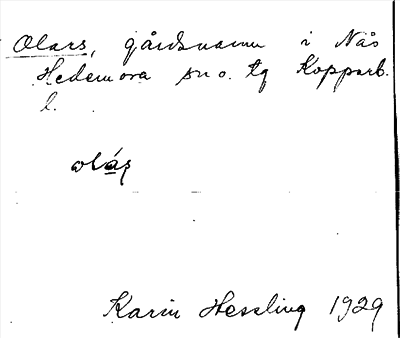 Olars, gårdsnamn i Nås
Hedemora sn o. tg Kopparb.
l.
olás
Karin Hessling 1929